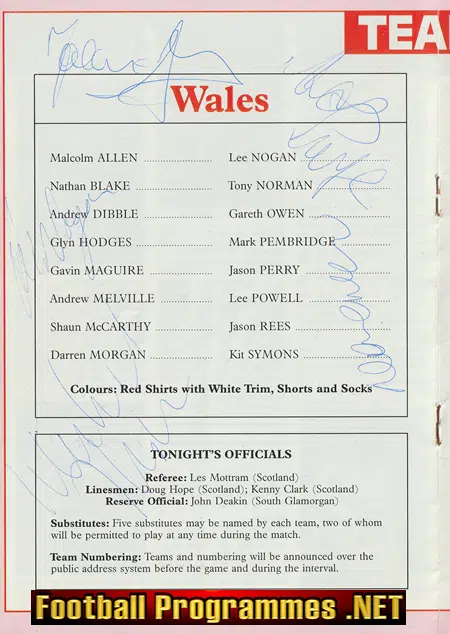 TEA
Wales
Malcolm ALLEN ........................ Lee NOGAN ........................
Nathan BLAKE ........................ Tony NORMAN ........................
Andrew DIBBLE ........................ Gareth OWEN ........................
Glyn HODGES ........................ Mark PEMBRIDGE ........................
Gavin MAGUIRE ........................ Jason PERRY ........................
Andrew MELVILLE ........................ Lee POWELL ........................
Shaun McCARTHY ........................ Jason REES ........................
Darren MORGAN ........................ Kit SYMONS ........................
Colours: Red Shirts with White Trim, Shorts and Socks
TONIGHT'S OFFICIALS
Referee: Les Mottram (Scotland)
Linesmen: Doug Hope (Scotland); Kenny Clark (Scotland)
Reserve Official: John Deakin (South Glamorgan)
Substitutes: Five substitutes may be named by each team, two of whom
will be permitted to play at any time during the match.
Team Numbering: Teams and numbering will be announced over the
public address system before the game and during the interval.
Football Programmes .NET